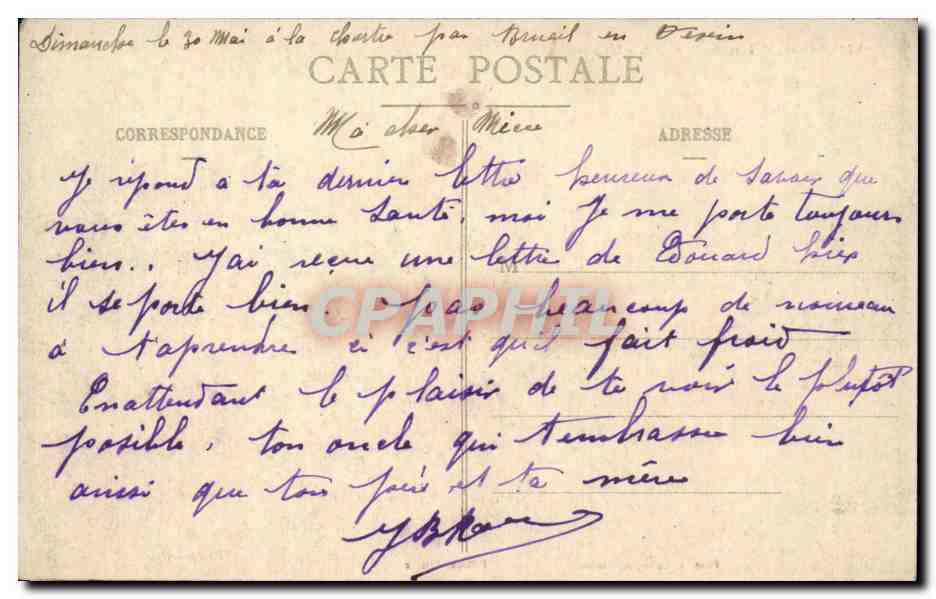 Dimanche le 30 Mai á la chartre par Brueil en Vexin
CARTE POSTALE
CORRESPONDANCE
ADRESSE
Ma cher Niece
Je répond a ta dernier lettre heureux de savoir que
vous êtes en bonne santé, moi Je me porte toujours
bien.. J'ai reçue une lettre de Edouard hier
M
il se porte bien. pas beaucoup de nouveau
CPAPHIL
á t'aprendre si c'est qu'il fait froid
En attendant le plaisir de te voir le plutôt
posible, ton oncle qui t'embrasse bien
ainsi que ton père et ta mére